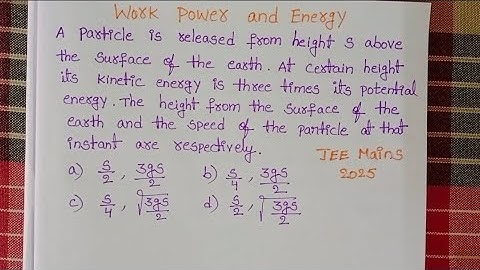 Work Power and Energy
A particle is released from height S above
the surface of the earth. At certain height
its kinetic energy is three times its potential
energy. The height from the surface of the
earth and the speed of the particle at that
instant are respectively.
JEE Mains
2025
a) S/2 , 3gS/2 b) S/4 , 3gS/2
c) S/4 , √(3gS/2) d) S/2 , √(3gS/2)